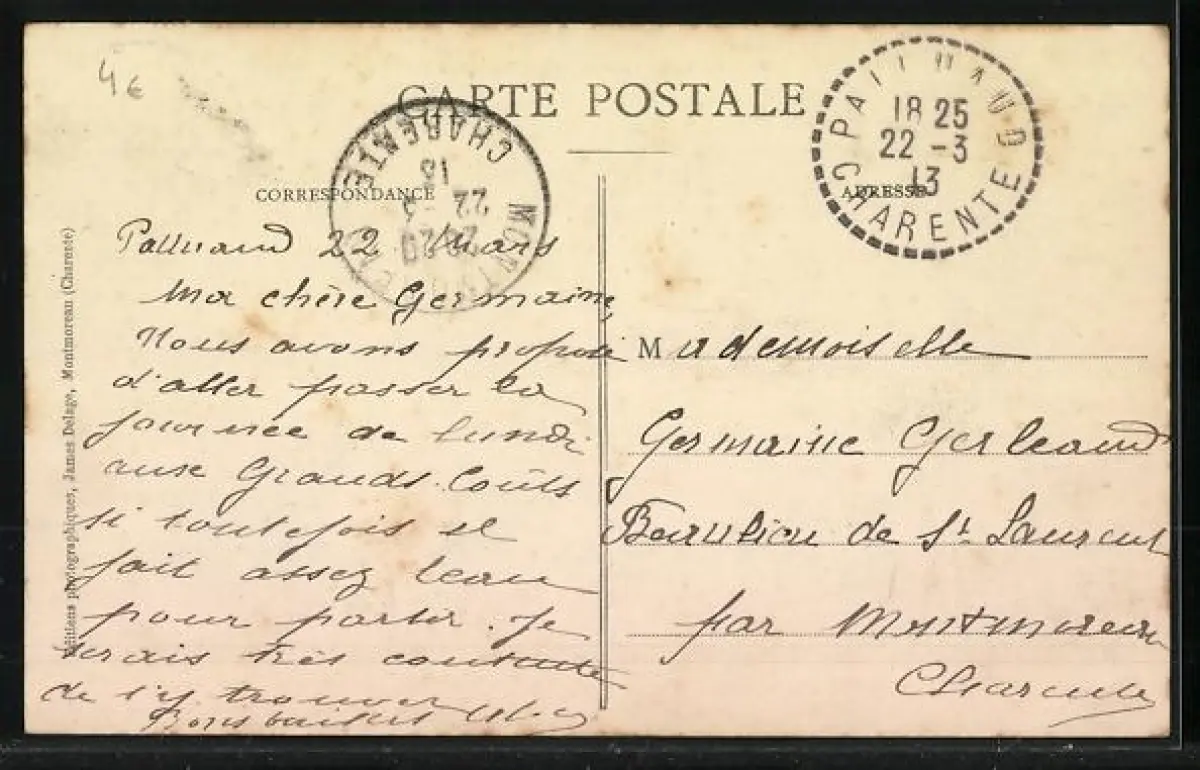 4€
CARTE POSTALE
CHARENTE
13
22 -3
PAILHAUD
18 25
22 -3
13
CHARENTE
CORRESPONDANCE
ADRESSE
22 Mars
Ma chère Germaine,
Nous avons proposé
d'aller passer la
journée de lundi
aux Grands
si toutefois il
fait assez beau
pour partir. Je
serais très contente
de t'y trouver
Bons baisers
Mademoiselle
Germaine Gerbeaud
Beaulieu de St Laurent
par Montmoreau
Charente
Editions photographiques, James Delage, Montmoreau (Charente)